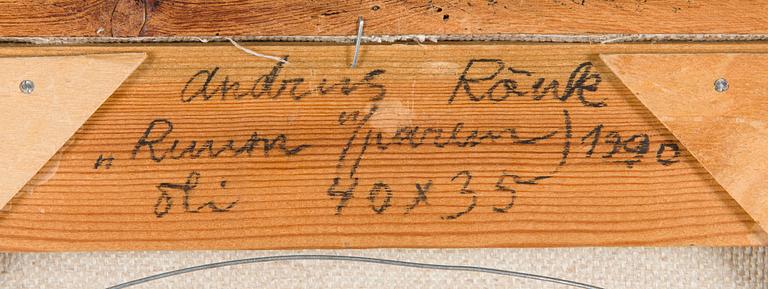 Andrus Rõuk
„Ruum" (parem) 1990
õli 40 x 35